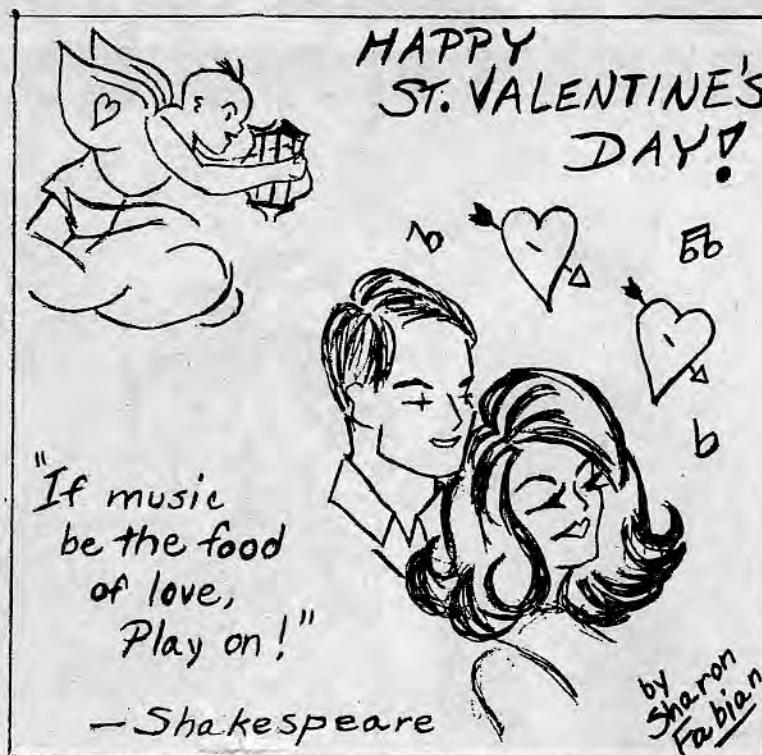 HAPPY
ST. VALENTINE'S
DAY!
"If music
be the food
of love,
Play on!"
— Shakespeare
by
Sharon
Fabian